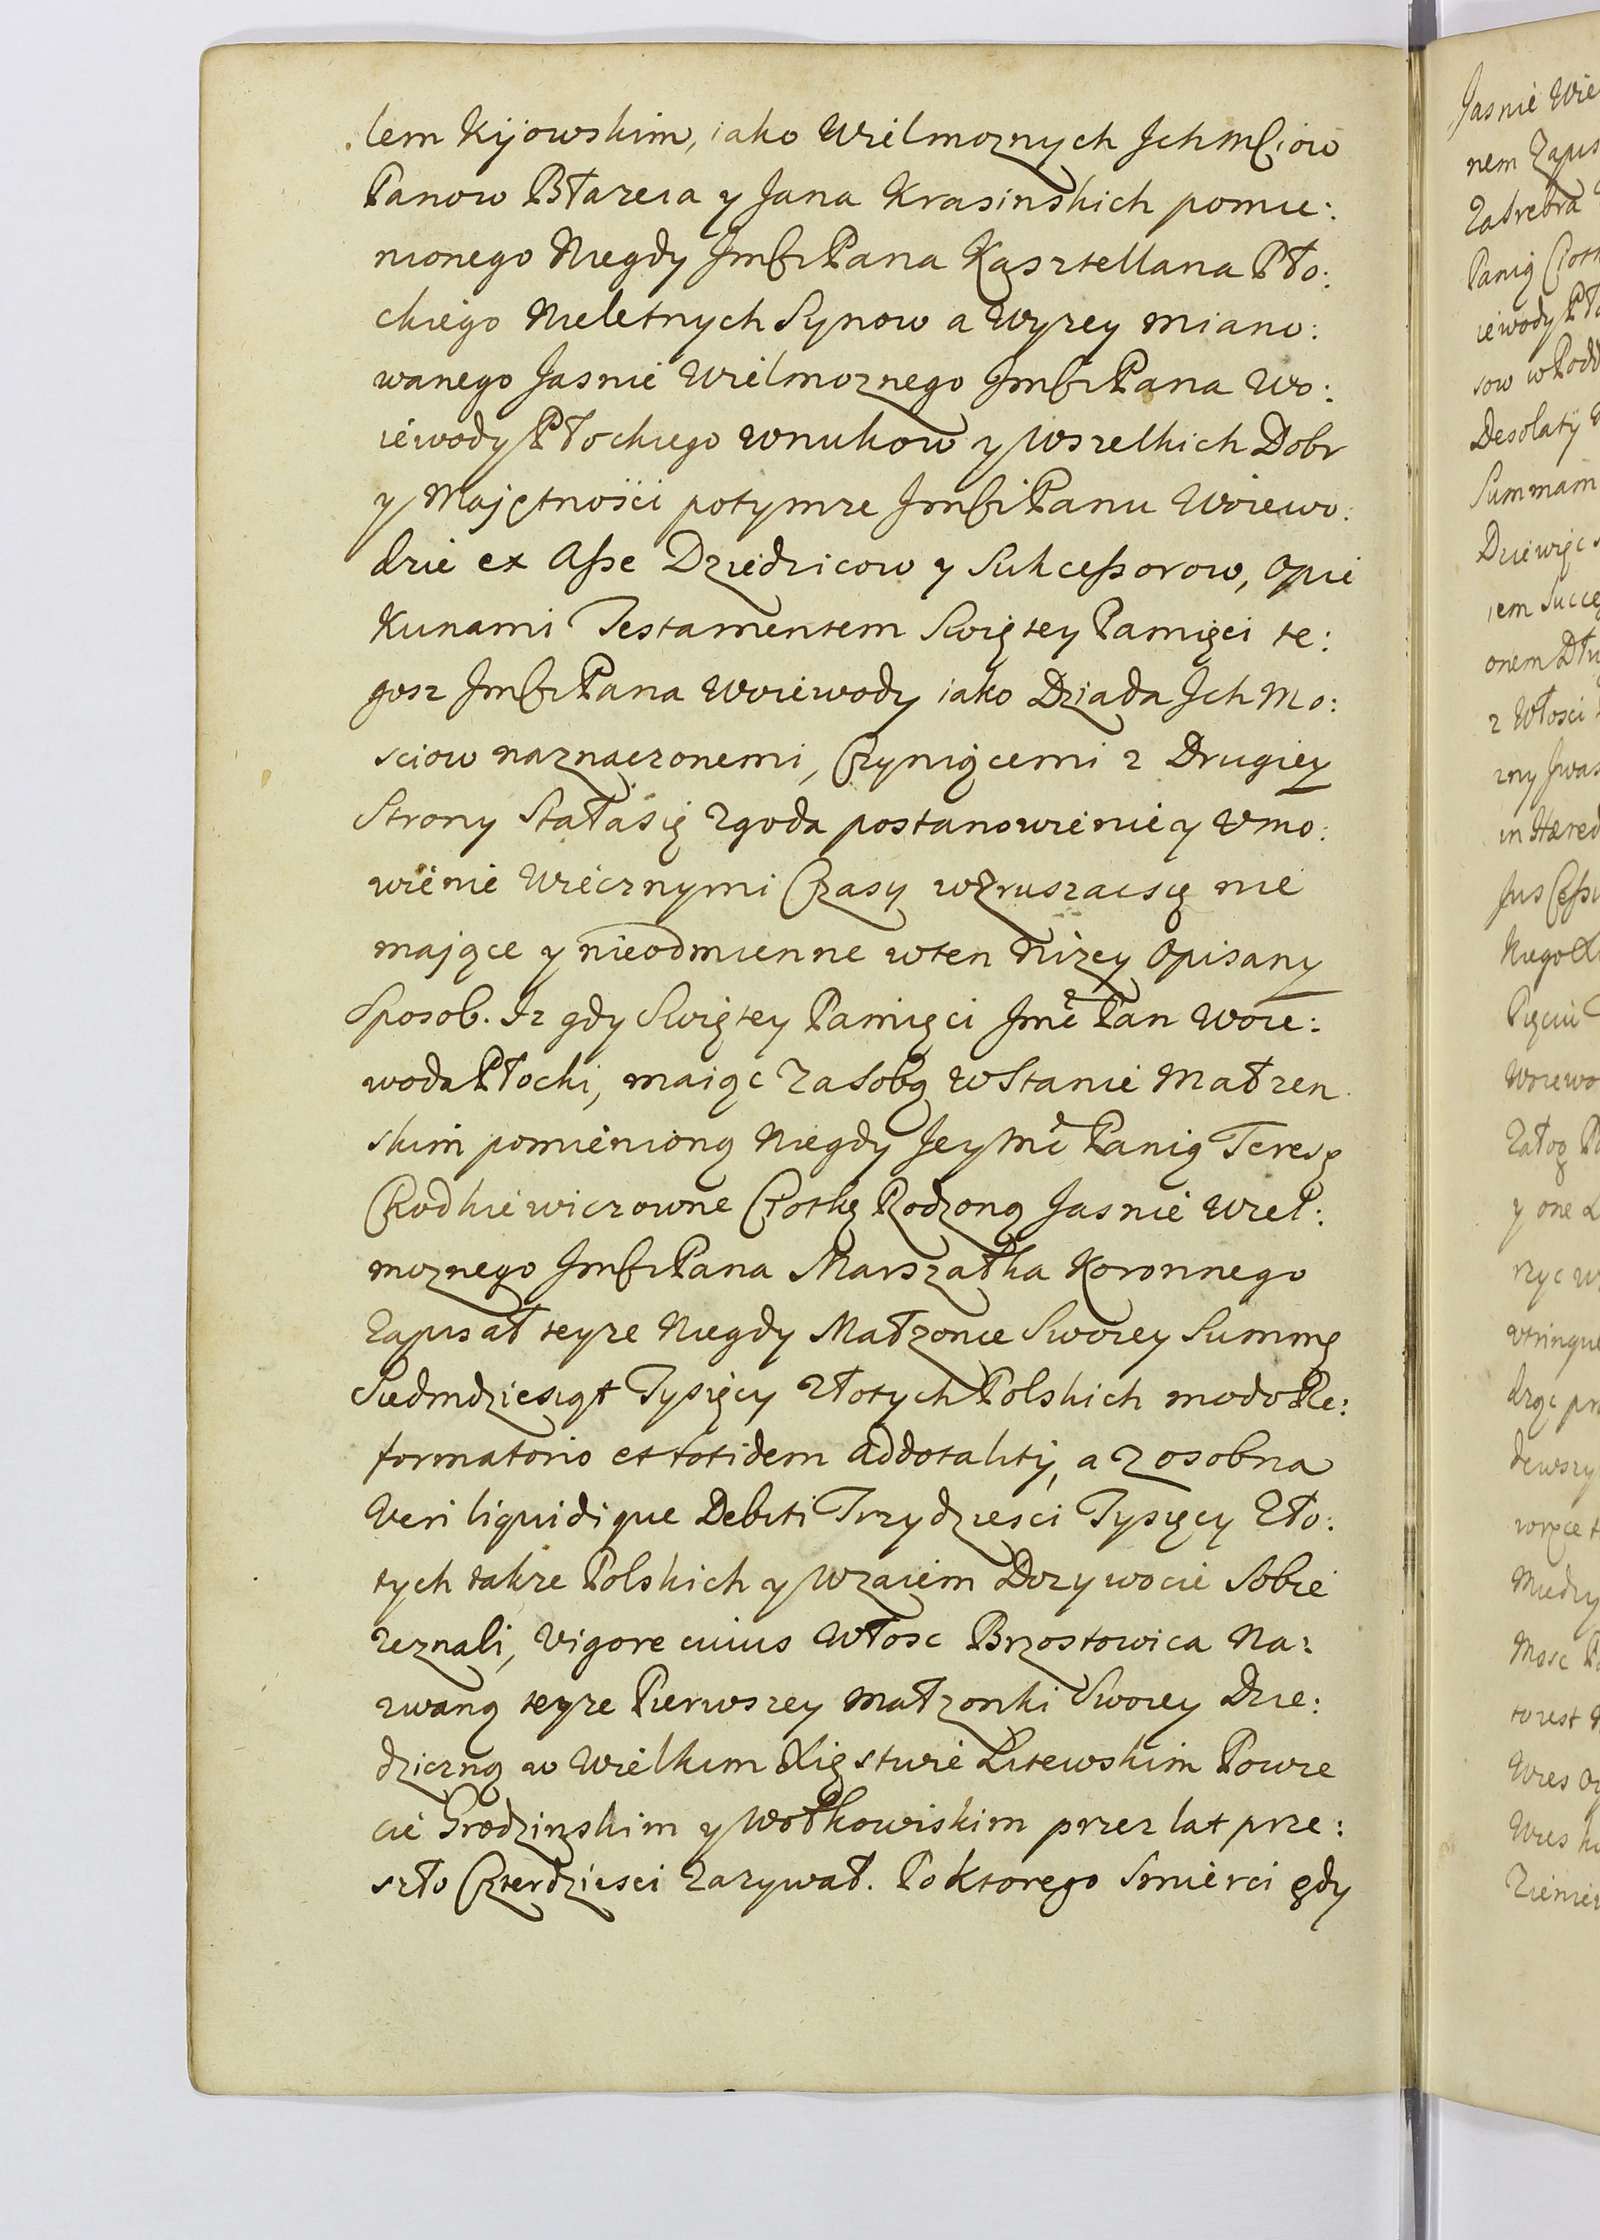 lem Kijowskim, iako Wielmoznych Jchmsciow
Panow Błazeia y Jana Krasinskich pomie:
nionego Niegdy Jmści Pana Kasztellana Pło:
ckiego Nieletnych Synow a Wyzey miano:
wanego Jasnie Wielmoznego Jmści Pana Wo:
iewody Płockiego Wnukow y Wszelkich Dobr
y Majętności potymze Jmści Panu Woiewo:
dzie ex Asse Dziedzicow y Sukcessorow, Opie
Kunami Testamentem Swiętey Pamięci te:
gosz Jmści Pana Woiewody iako Dziada Jch Mo:
sciow naznaczonemi, Czyniącemi z Drugiey
Strony Stałasię Zgoda postanowienie y Vmo:
wienie Wiecznymi Czasy wzruszacsię nie
mające y nieodmienne wten niżey Opisany
Sposob. Iz gdy Swiętey Pamięci Jmć Pan Woie:
woda Płocki, maiąc Zasobą W Stanie Małzen
skim pomienioną Niegdy Jey Mć Panią Teresę
Chodkiewiczowne Ciotkę Rodzoną Jasnie Wiel:
moznego Jmści Pana Marszałka Koronnego
Zapisał teyze Niegdy Małzonce Swoiey Summę
Siedmdziesiąt Tysięcy Złotych Polskich modo Re:
formatorio et totidem addotality, a Zosobna
Veri liquidique Debiti Trzydziesci Tysięcy Zło:
tych takze Polskich y Wzaiem Dozywocie Sobie
zeznali, Vigore cuius Włosc Brzostowica Na:
zwaną teyze Pierwszey małzonki Swoiey Dzie:
dziczną w Wielkim Xięstwie Litewskim Powie
cie Grodzinskim y Wołkowiskim przez lat prze:
szło Czterdziesci Zazywał. Po Ktorego Smierci gdy